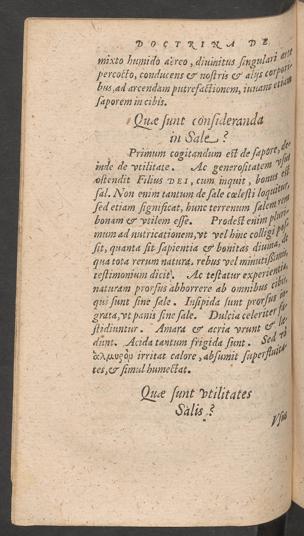 DOCTRINA DE
mixto humido aëreo, diuinitus singulari arte
percocto, conducens & nostris & alijs corpori-
bus, ad arcendam putrefactionem, iuuans etiam
saporem in cibis.
Quæ sunt consideranda
in Sale?
Primum cogitandum est de sapore, de-
inde de vtilitate. Ac generositatem
ostendit Filius DEI, cum inquit, bonus est
sal. Non enim tantum de sale cælesti loquitur,
sed etiam significat, hunc terrenum salem rem
bonam & vtilem esse. Prodest enim pluri-
mum ad nutricationem, vt vel hinc colligi pos-
sit, quanta sit sapientia & bonitas diuina, de
qua tota rerum natura, rebus vel minutissimis,
testimonium dicit. Ac testatur experientia,
naturam prorsus abhorrere ab omnibus cibis,
qui sunt sine sale. Insipida sunt prorsus in-
grata, vt panis sine sale. Dulcia celeriter fa-
stidiuntur. Amara & acria vrunt & læ-
dunt. Acida tantum frigida sunt. Sed
ἁλμυρὸν irritat calore, absumit superfluita-
tes, & simul humectat.
Quæ sunt vtilitates
Salis?
Vsus